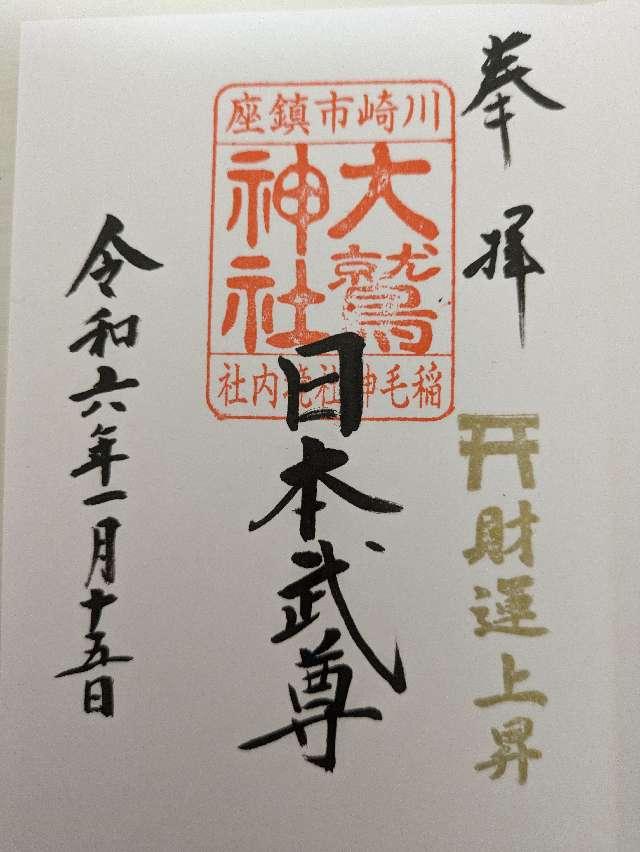 奉拝
財運上昇
川崎市鎮座
大鷲
神社
稲毛神社境内社
日本武尊
令和六年一月十五日